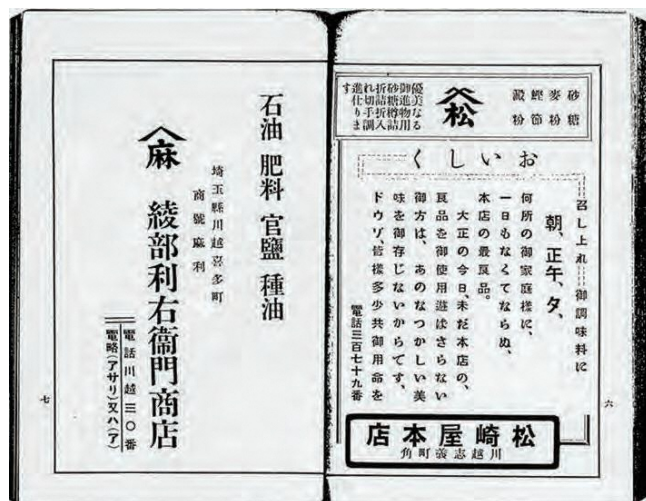 砂糖
麥粉
鰹節
澱粉
松
優美なる
御進物用
砂糖樽詰
折詰折入
れ切手調
進仕りま
す
おいしく
召し上れ
御調味料に
朝、正午、夕、
何所の御家庭樣に、
一日もなくてならぬ、
本店の最良品。
大正の今日、未だ本店の、
良品を御使用遊ばさらない
御方は、あのなつかしい美
味を御存じないからです、
ドウゾ、皆樣多少共御用命を
電話三百七十九番
松崎屋本店
川越志義町角
六
石油 肥料 官鹽 種油
埼玉縣川越喜多町
商號麻利
麻 綾部利右衞門商店
電話川越三〇番
電略(アサリ)又ハ(ア)
七